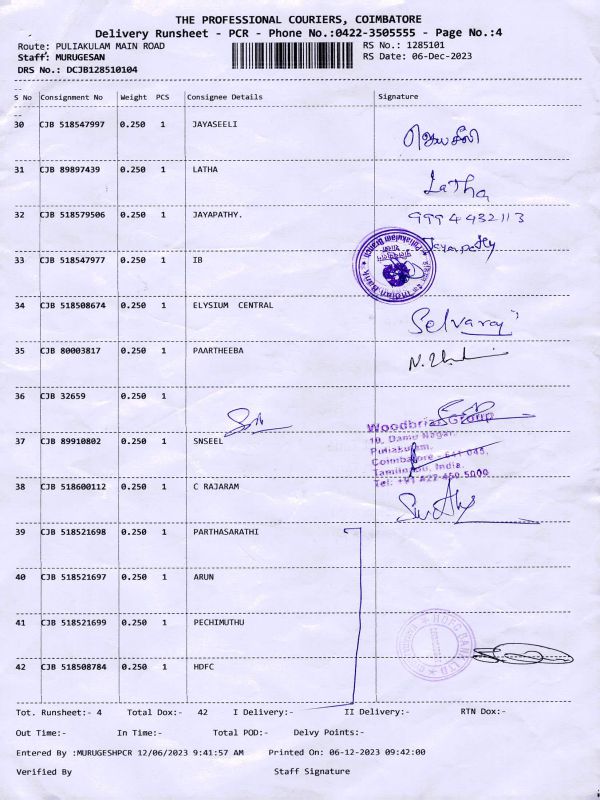 THE PROFESSIONAL COURIERS, COIMBATORE
Delivery Runsheet - PCR - Phone No.:0422-3505555 - Page No.:4
Route: PULIAKULAM MAIN ROAD RS No.: 1285101
Staff: MURUGESAN RS Date: 06-Dec-2023
DRS No.: DCJB128510104
S No Consignment No Weight PCS Consignee Details Signature
30 CJB 518547997 0.250 1 JAYASEELI
ஜெயசீலி
31 CJB 89897439 0.250 1 LATHA
Latha
32 CJB 518579506 0.250 1 JAYAPATHY. 9994432113
Jayapathy
33 CJB 518547977 0.250 1 IB
Indian Bank
Puliakulam Branch
34 CJB 518508674 0.250 1 ELYSIUM CENTRAL
Selvaraj
35 CJB 80003817 0.250 1 PAARTHEEBA
36 CJB 32659 0.250 1
Woodbriar Group
10, Damu Nagar,
Puliakulam,
Coimbatore - 641 045,
Tamilnadu, India.
Tel: +91 422-450 5000
37 CJB 89910802 0.250 1 SNSEEL
38 CJB 518600112 0.250 1 C RAJARAM
39 CJB 518521698 0.250 1 PARTHASARATHI
40 CJB 518521697 0.250 1 ARUN
41 CJB 518521699 0.250 1 PECHIMUTHU
HDFC BANK LTD
42 CJB 518508784 0.250 1 HDFC
Tot. Runsheet:- 4 Total Dox:- 42 I Delivery:- II Delivery:- RTN Dox:-
Out Time:- In Time:- Total POD:- Delvy Points:-
Entered By :MURUGESHPCR 12/06/2023 9:41:57 AM Printed On: 06-12-2023 09:42:00
Verified By Staff Signature